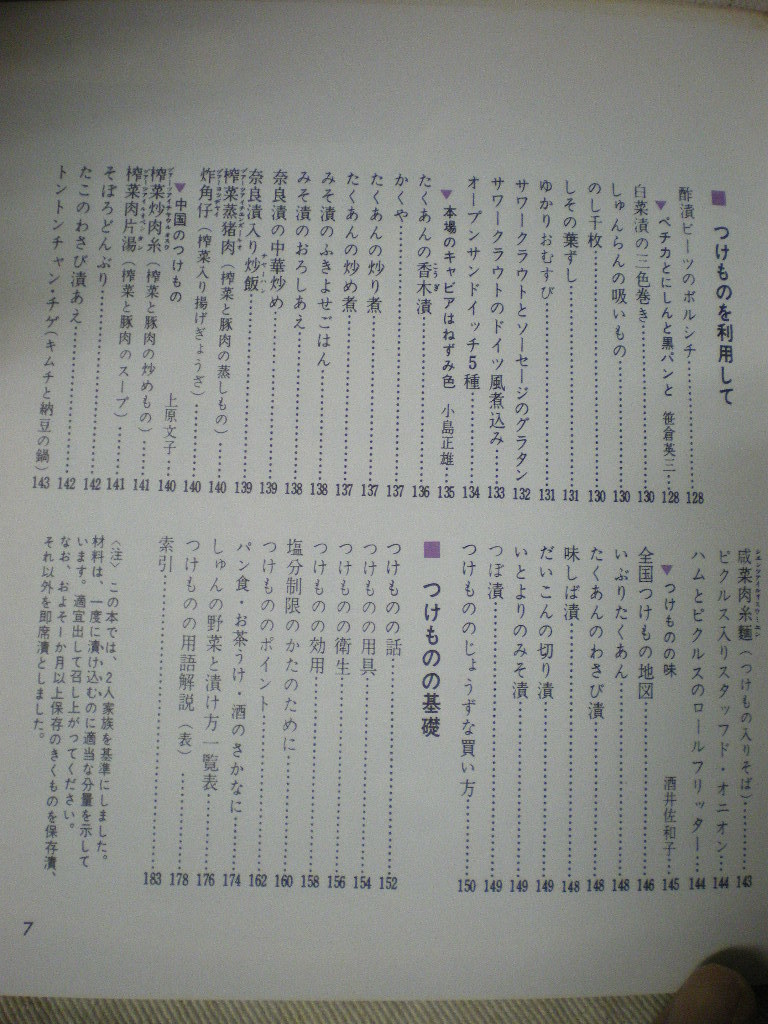 ■ つけものを利用して
酢漬ビーツのボルシチ……128
▼ペチカとにしんと黒パンと 笹倉英三……128
白菜漬の三色巻き……130
しゅんらんの吸いもの……130
のし千枚……130
しその葉ずし……131
ゆかりおむすび……131
サワークラウトとソーセージのグラタン……132
サワークラウトのドイツ風煮込み……133
オープンサンドイッチ5種……134
▼本場のキャビアはねずみ色 小島正雄……135
たくあんの香木漬……136
かくや……137
たくあんの炒り煮……137
たくあんの炒め煮……137
みそ漬のふきよせごはん……138
みそ漬のおろしあえ……138
奈良漬の中華炒め……139
奈良漬入り炒飯……139
榨菜蒸猪肉(榨菜と豚肉の蒸しもの)……140
炸角仔(榨菜入り揚げぎょうざ)……140
▼中国のつけもの 上原文子……140
榨菜炒肉糸(榨菜と豚肉の炒めもの)……141
榨菜肉片湯(榨菜と豚肉のスープ)……141
そぼろどんぶり……142
たこのわさび漬あえ……142
トントンチャン・チゲ(キムチと納豆の鍋)……143
咸菜肉糸麺(つけもの入りそば)……143
ピクルス入りスタッフド・オニオン……144
ハムとピクルスのロールフリッター……144
▼つけものの味 酒井佐和子……145
全国つけもの地図……146
いぶりたくあん……148
たくあんのわさび漬……148
味しば漬……148
だいこんの切り漬……149
いとよりのみそ漬……149
つぼ漬……149
つけもののじょうずな買い方……150
■ つけものの基礎
つけものの話……152
つけものの用具……154
つけものの衛生……156
つけものの効用……158
塩分制限のかたのために……160
つけもののポイント……162
パン食・お茶うけ・酒のさかなに……174
しゅんの野菜と漬け方一覧表……176
つけものの用語解説(表)……178
索引……183
〈注〉この本では、2人家族を基準にしました。
材料は、一度に漬け込むのに適当な分量を示して
います。適宜出して召し上がってください。
なお、およそ一か月以上保存のきくものを保存漬、
それ以外を即席漬としました。
7